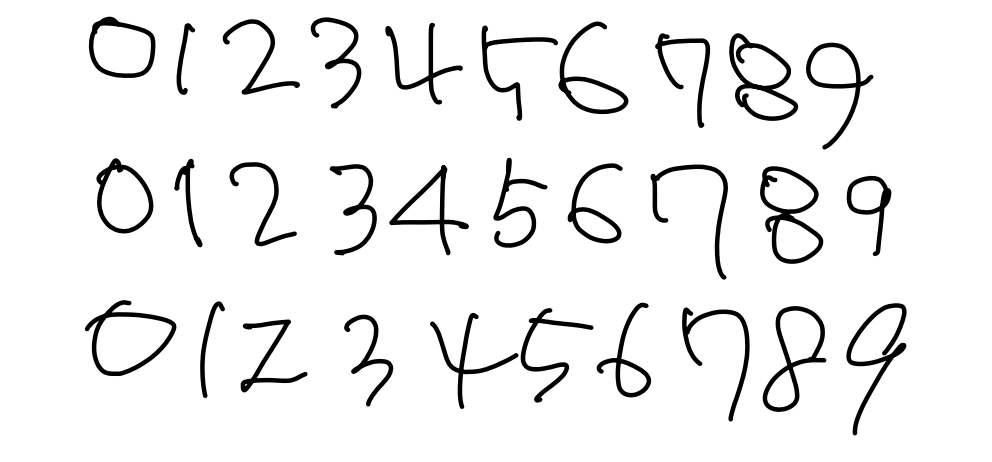 0123456789
0123456789
0123456789